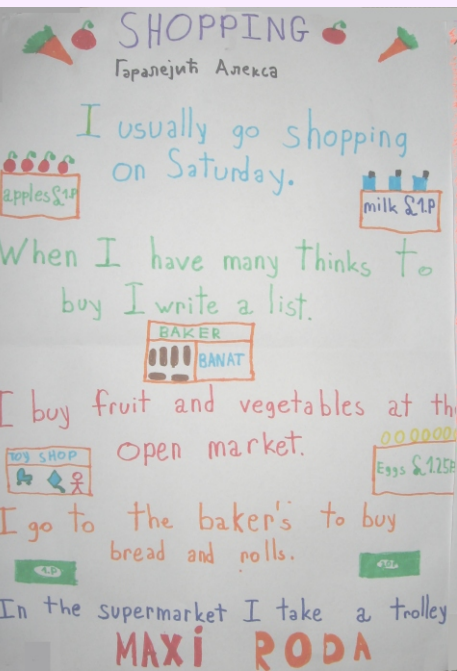 SHOPPING
Гаралејић Алекса
I usually go shopping
on Saturday.
apples £1.P
milk £1.P
When I have many thinks to
buy I write a list.
BAKER
BANAT
I buy fruit and vegetables at th
open market.
TOY SHOP
Eggs £1.25P
I go to the baker's to buy
bread and rolls.
In the supermarket I take a trolley
MAXi RODA